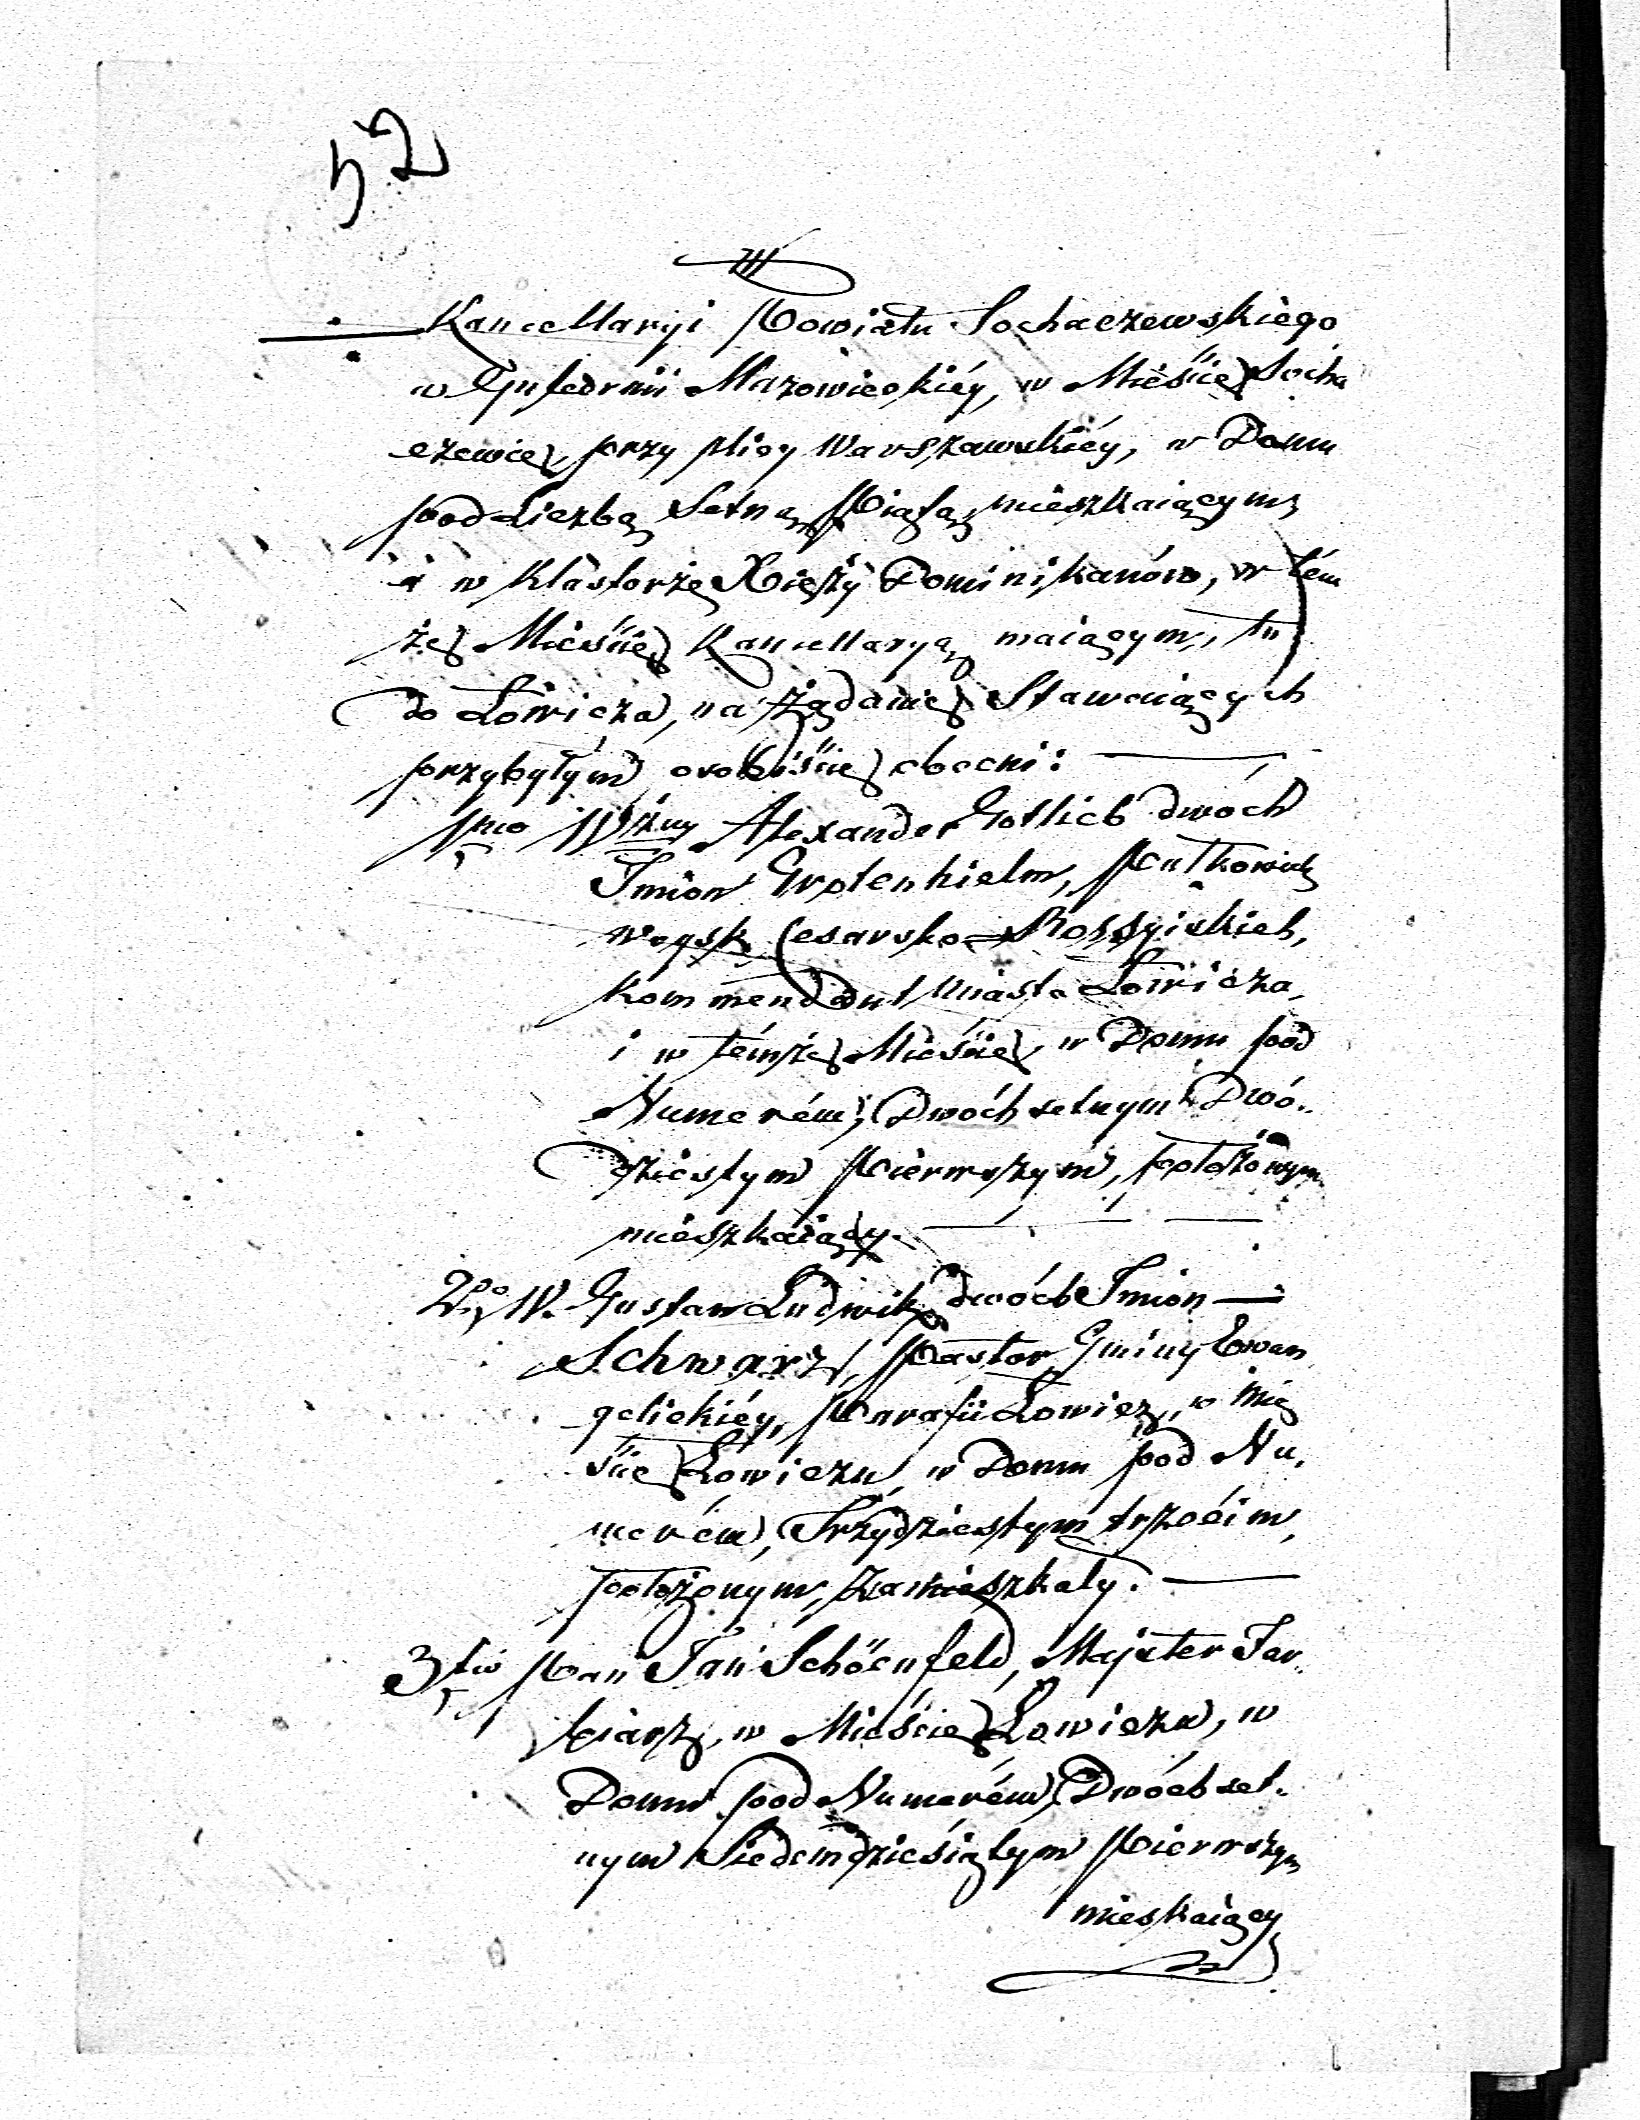 52
III
Kancellaryi Powiatu Sochaczewskiego
w Gubernii Mazowieckiéy, w Mieście Socha
czewie, przy ulicy Warszawskiéy, w Domu
pod Liczbą Setną Piątą, mieszkaiącym,
a w Klasztorze Xięży Dominikanów, w tém
że Mieście Kancellaryą maiącym, tu
do Łowicza, na żądanie Stawaiących
przybyłym, osobiście obecni:
1mo Wżny Alexander Gotlieb dwóch
Imion Grotenhielm, Pułkownik
woysk Cesarsko=Rossyiskich,
Kommendant Miasta Łowicza,
i w témże Mieście, w Domu pod
Numerém, Dwóchsetnym Dwó..
dziestym Pierwszym, położonym
mieszkaiący.
2do W. Gustaw Ludwik dwóch Imion
Schwarz, Pastor Gminy Ewan
gelickiéy, Parafii Łowicz, w Mie
ście Łowiczu, w Domu pod Nu.
merém, Trzydziestym trzecim,
położonym, zamieszkały.
3tio Pan Jan Schöenfeld, Majster Far..
biarz, w Mieście Łowiczu, w
Domu pod Numerém, Dwóchset.
nym Siedemdziesiątym Pierwszym
mieszkaiący